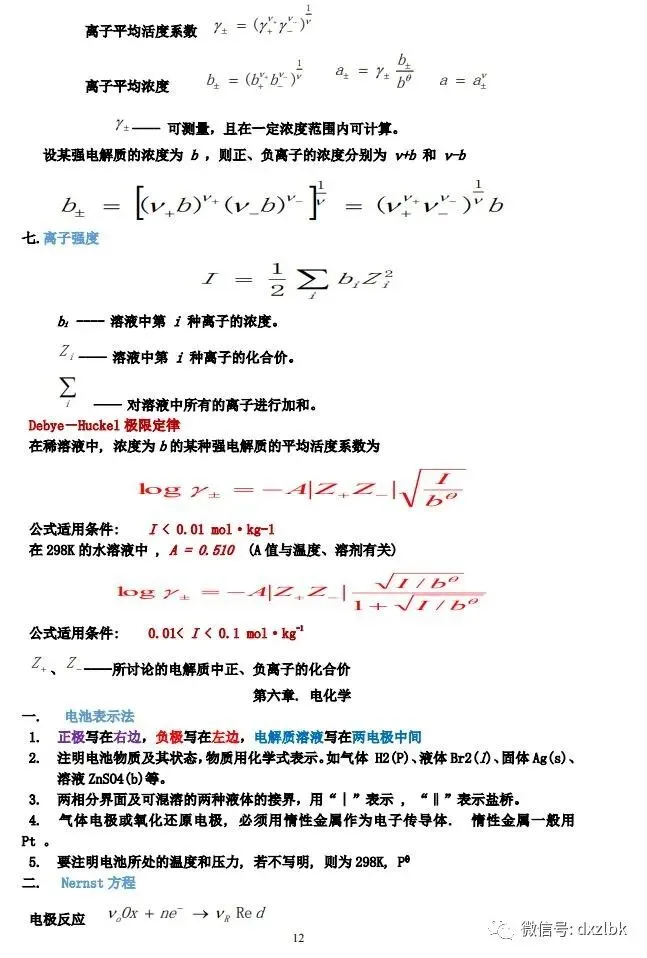 离子平均活度系数 γ± = (γ+^ν+ γ−^ν−)^(1/ν)
离子平均浓度 b± = (b+^ν+ b−^ν−)^(1/ν) a± = γ± b±/b^θ a = a±^ν
γ± —— 可测量，且在一定浓度范围内可计算。
设某强电解质的浓度为 b ，则正、负离子的浓度分别为 ν+b 和 ν-b
b± = [(ν+b)^ν+ (ν−b)^ν−]^(1/ν) = (ν+^ν+ ν−^ν−)^(1/ν) b
七.离子强度
I = 1/2 ∑i bi Zi^2
bi ---- 溶液中第 i 种离子的浓度。
Zi —— 溶液中第 i 种离子的化合价。
∑i —— 对溶液中所有的离子进行加和。
Debye－Huckel 极限定律
在稀溶液中, 浓度为 b 的某种强电解质的平均活度系数为
log γ± = −A|Z+Z−|√(I/b^θ)
公式适用条件: I < 0.01 mol·kg-1
在 298K 的水溶液中 , A = 0.510 (A 值与温度、溶剂有关)
log γ± = −A|Z+Z−| √(I/b^θ) / (1+√(I/b^θ))
公式适用条件: 0.01< I < 0.1 mol·kg^-1
Z+ 、 Z− ——所讨论的电解质中正、负离子的化合价
第六章. 电化学
一. 电池表示法
1. 正极写在右边，负极写在左边，电解质溶液写在两电极中间
2. 注明电池物质及其状态,物质用化学式表示。如气体 H2(P)、液体 Br2(l)、固体 Ag(s)、
溶液 ZnSO4(b)等。
3. 两相分界面及可混溶的两种液体的接界，用“｜”表示 ，“‖”表示盐桥。
4. 气体电极或氧化还原电极, 必须用惰性金属作为电子传导体. 惰性金属一般用
Pt 。
5. 要注明电池所处的温度和压力, 若不写明, 则为 298K, P^θ
二. Nernst 方程
电极反应 νoOx + ne^− → νR Re d
12
微信号: dxzlbk